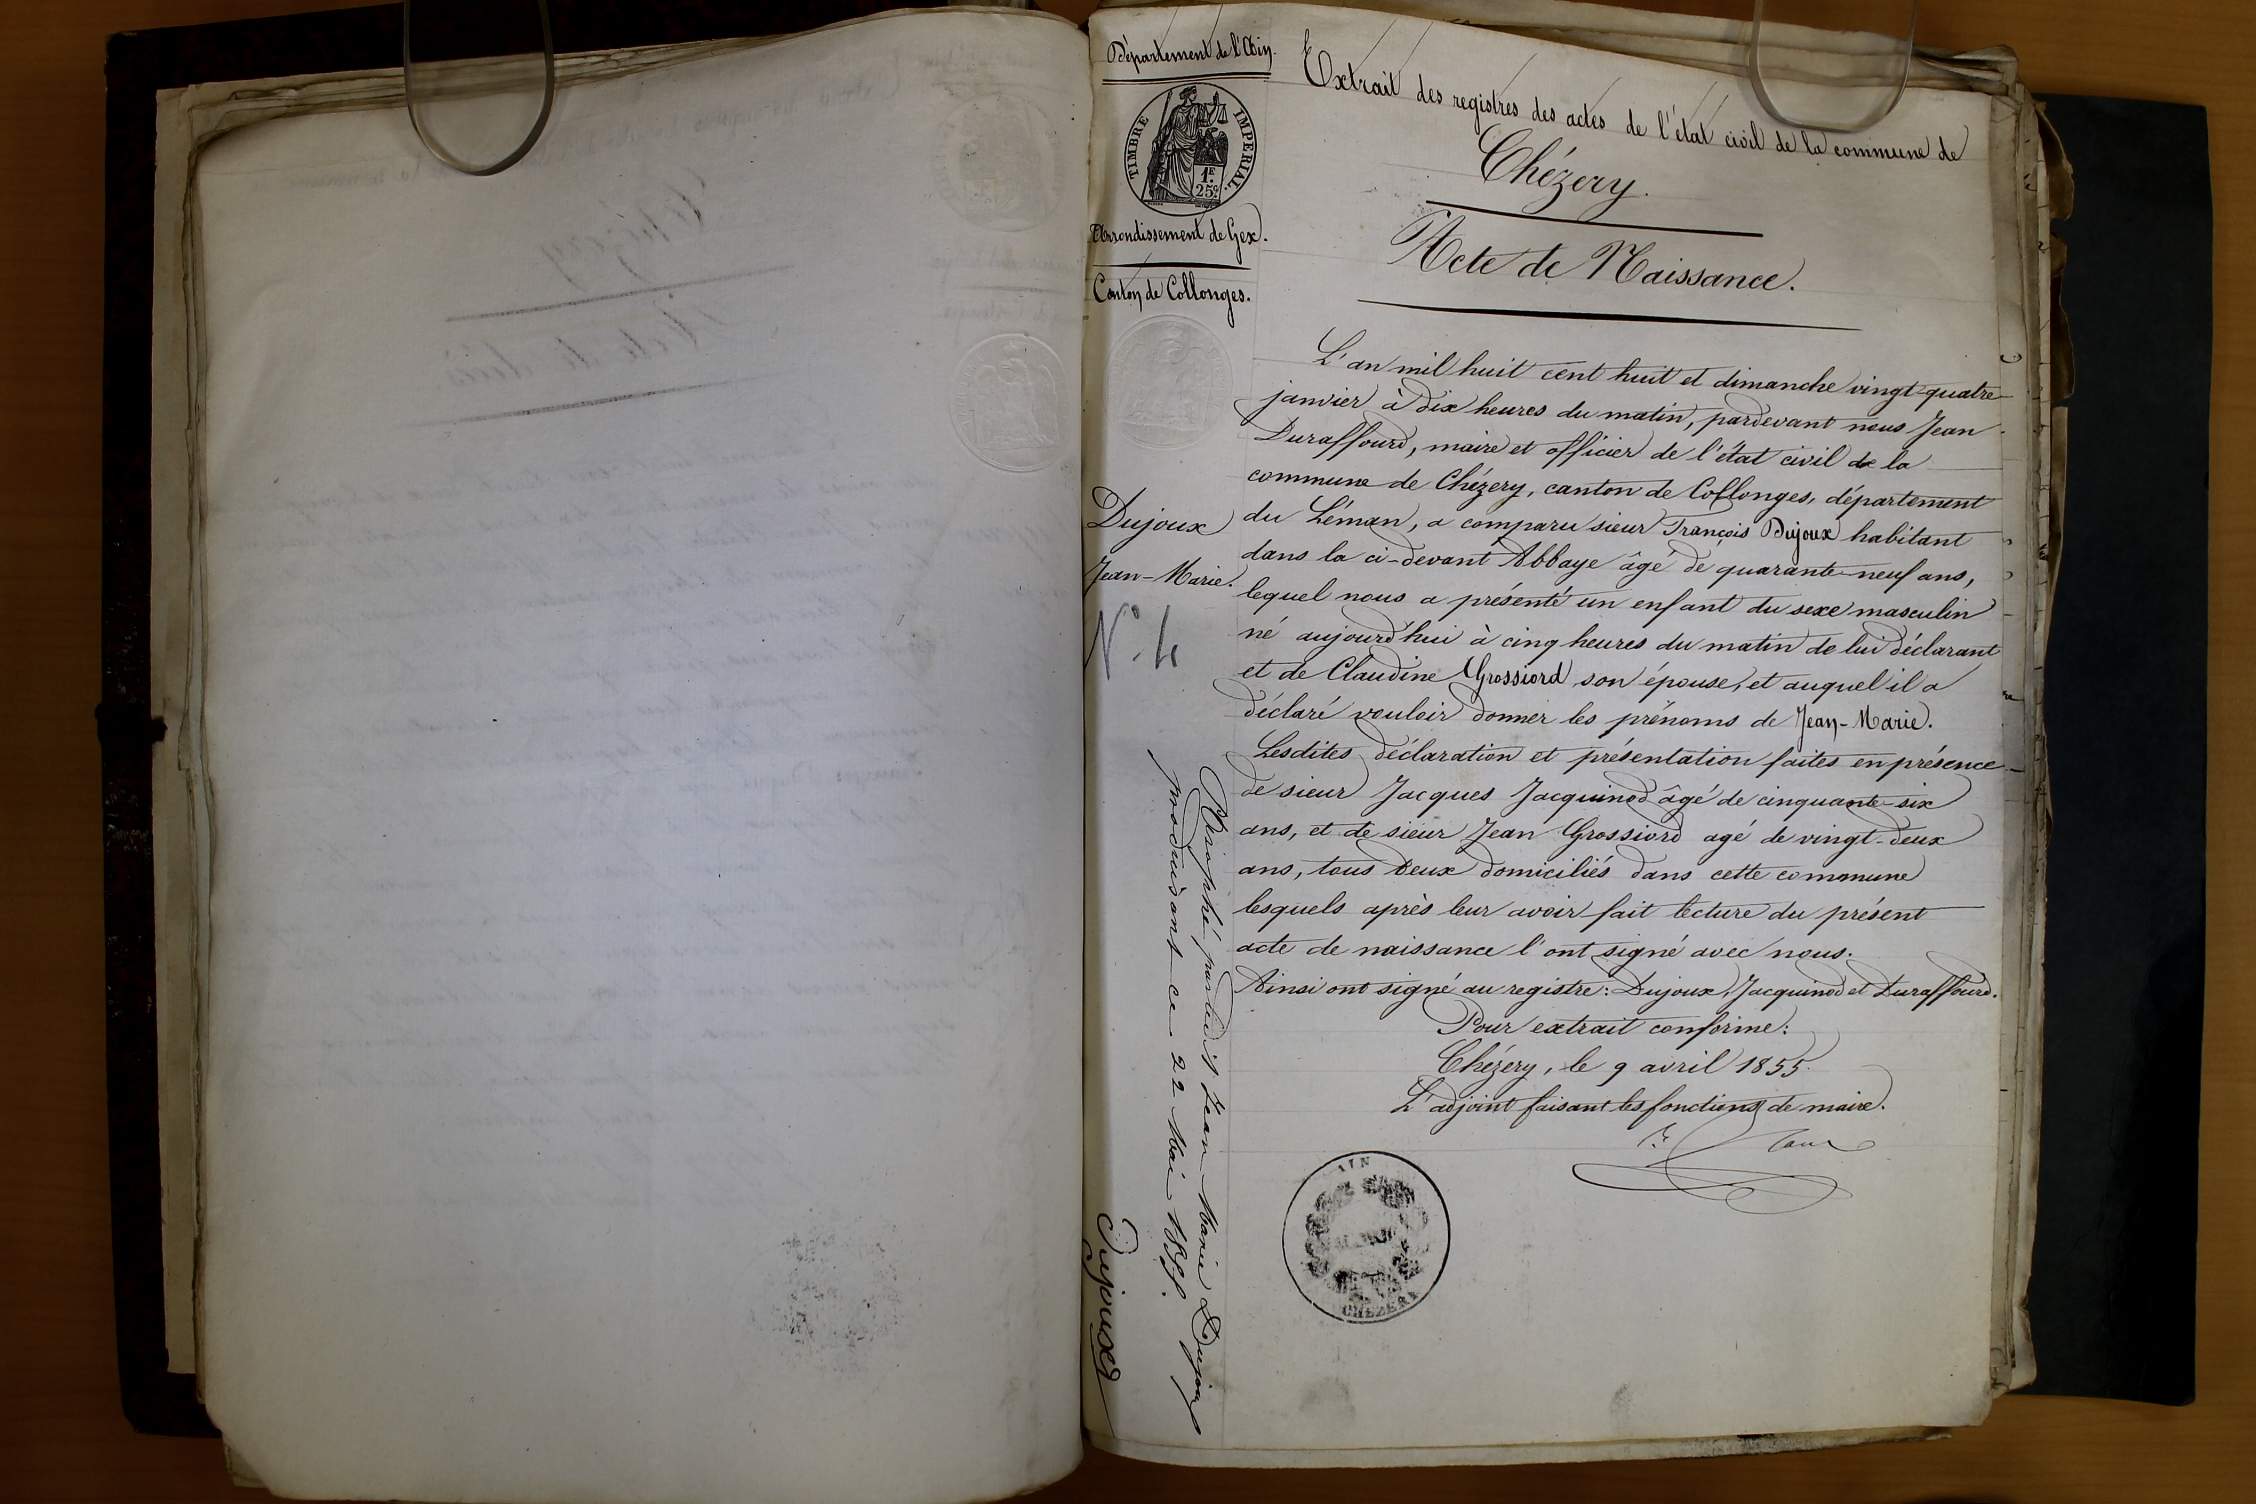 Département de l'Ain.
TIMBRE IMPERIAL.
1F. 25c.
Arrondissement de Gex.
Canton de Collonges.
Extrait des registres des actes de l'état civil de la commune de
Chézery.
Acte de Naissance.
Dujoux
Jean-Marie.
N° 4
L'an mil huit cent huit et dimanche vingt-quatre
janvier à dix heures du matin, pardevant nous Jean
Duraffourd, maire et officier de l'état civil de la
commune de Chézery, canton de Collonges, département
du Léman, a comparu sieur François Dujoux habitant
dans la ci-devant Abbaye âgé de quarante-neuf ans,
lequel nous a présenté un enfant du sexe masculin
né aujourd'hui à cinq heures du matin de lui déclarant
et de Claudine Grossiord son épouse, et auquel il a
déclaré vouloir donner les prénoms de Jean-Marie.
Lesdites déclaration et présentation faites en présence
de sieur Jacques Jacquinod âgé de cinquante-six
ans, et de sieur Jean Grossiord agé de vingt-deux
ans, tous deux domiciliés dans cette commune
lesquels après leur avoir fait lecture du présent
acte de naissance l'ont signé avec nous.
Ainsi ont signé au registre: Dujoux, Jacquinod et Duraffourd.
Pour extrait conforme:
Chézery, le 9 avril 1855.
L'adjoint faisant les fonctions de maire.
AIN
CHÉZERY
Paraphé par ledit Jean Marie Dujoux
produisant ce 22 Mai 1855.
Dujoux
Chézery
Acte de décès